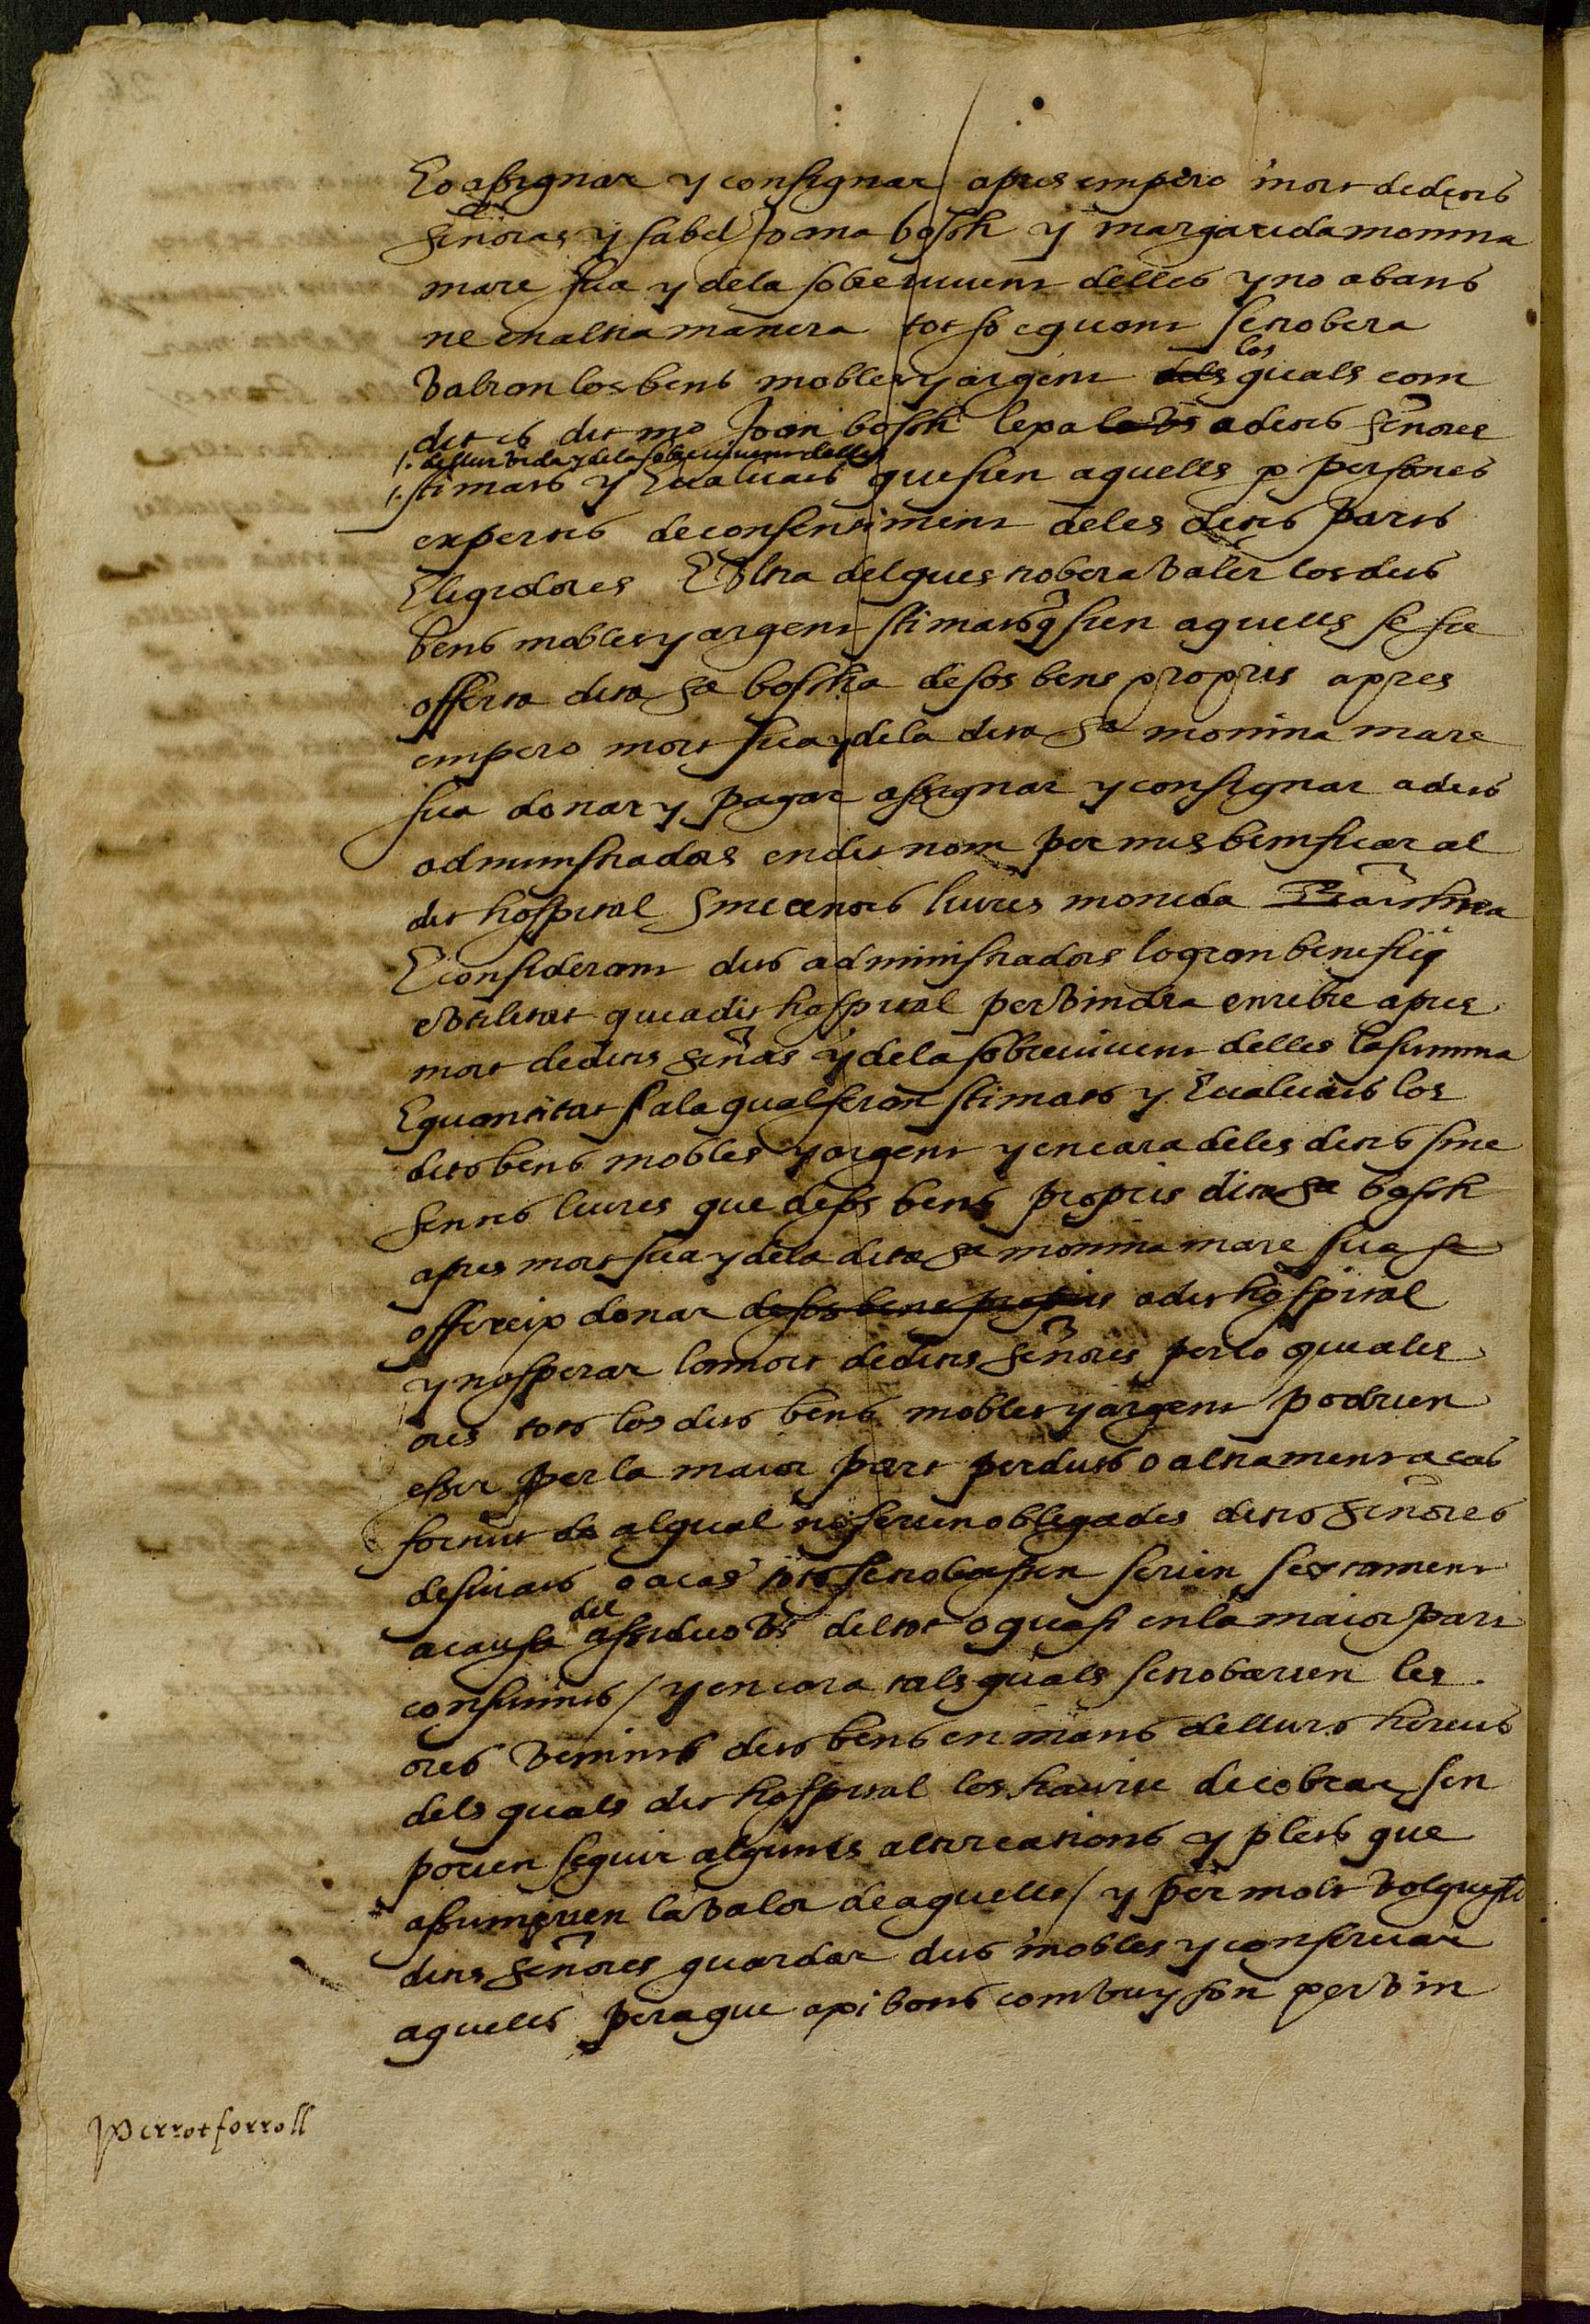 Eo assignar y consignar apres empero mort de dites
señoras ysabel Joana bosch y margarida monina
mare sua y dela sobreuiuent delles y no abans
ne en altra manera tot so e quant se trobera
valran los bens mobles y argent dels los quals com
dit es dit mº Joan bosch lexa lo vs a dites señores
/. de llur vida y dela sobreuiuent delles
/. stimats y Eualuats que sien aquells p persones
expertes de consentiment deles dites parts
Eligidores E vltra del ques trobera valer los dits
bens mobles y argent stimats q sien aquells se sie
offerta dita sª boscha de sos bens propris apres
empero mort sua y dela dita sª monina mare
sua donar y pagar assignar y consignar a dits
administradors en dit nom per mes benificar al
dit hospital sinc centes liures moneda
E considerant dits administradors lo gran benefici
e vtilitat que a dit hospital per vindra en rebre apres
mort de dites señas y dela sobreuiuent delles la summa
E quantitat / ala qual seran stimats y Eualuats los
dits bens mobles y argent y encara deles dites sinc
sentes liures que de sos bens propris dita sª bosch
apres mort sua y dela dita sª monina mare sua se
offereix donar de sos bens propris a dit hospital
y no sperar la mort de dites señores per lo quales
ores tots los dits bens mobles y argent podrien
esser per la maior part perduts o altrament a cas
fortuit de al qual no serien obligades dites señores
desuiats o acas tots se trobassen serien sertament
a causa del assiduo vs del tot o quasi en la maior part
consumits / y encara tals quals se trobarien les
ores venints dits bens en mans de llurs hereus
dels quals dit hospital los hauria de cobrar sen
porien seguir algunes altercations y plets que
assumirien la valor de aquells / y per molt volguessen
dites señores guardar dits mobles y conseruar
aquells pera que axi bons com vuy son per vin
Perrot forroll